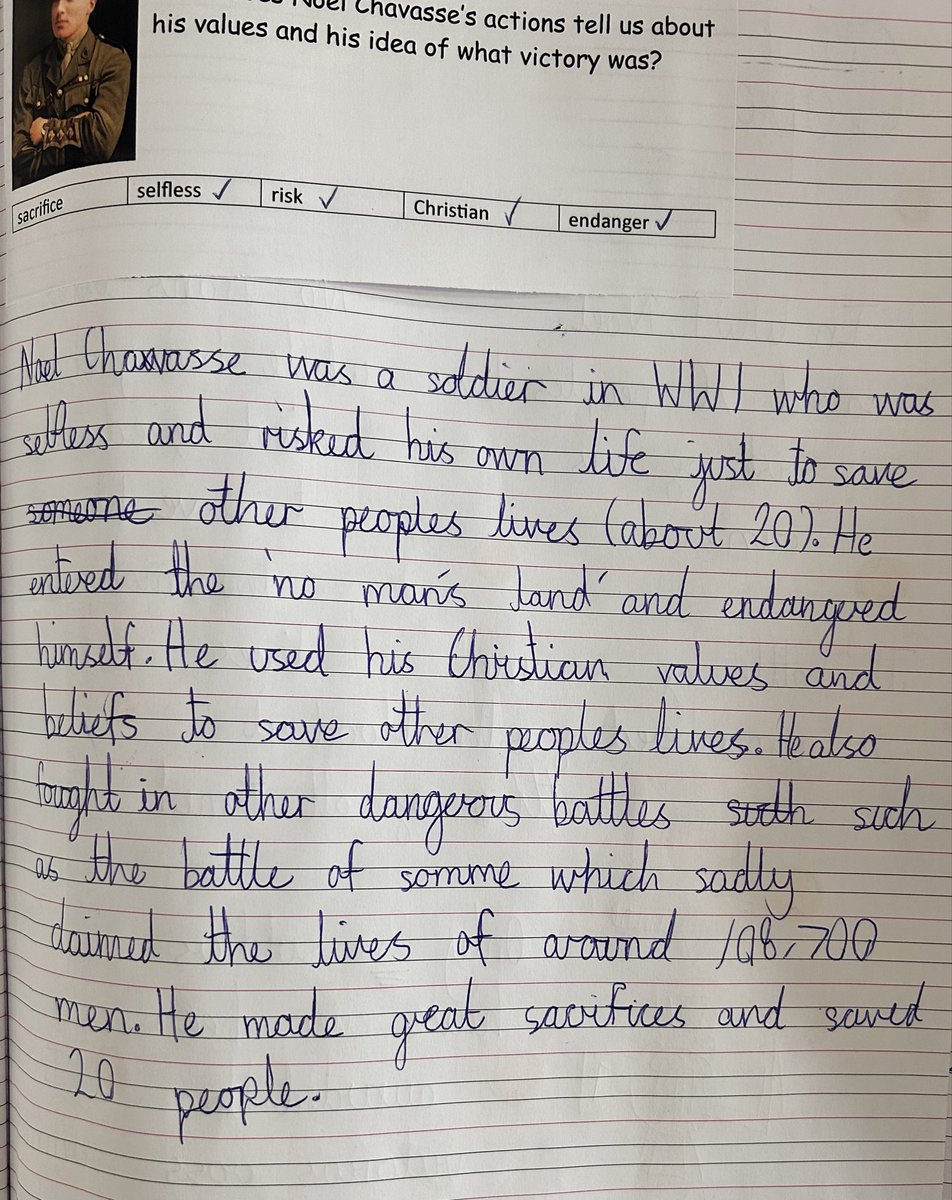 Noel Chavasse's actions tell us about
his values and his idea of what victory was?
sacrifice selfless ✓ risk ✓ Christian ✓ endanger ✓
Noel Chavvasse was a soldier in WW1 who was
selfless and risked his own life just to save
~~someone~~ other peoples lives (about 20). He
entered the 'no man's land' and endangered
himself. He used his Christian values and
beliefs to save other peoples lives. He also
fought in other dangerous battles ~~sucth~~ such
as the battle of somme which sadly
claimed the lives of around 108,700
men. He made great sacrifices and saved
20 people.